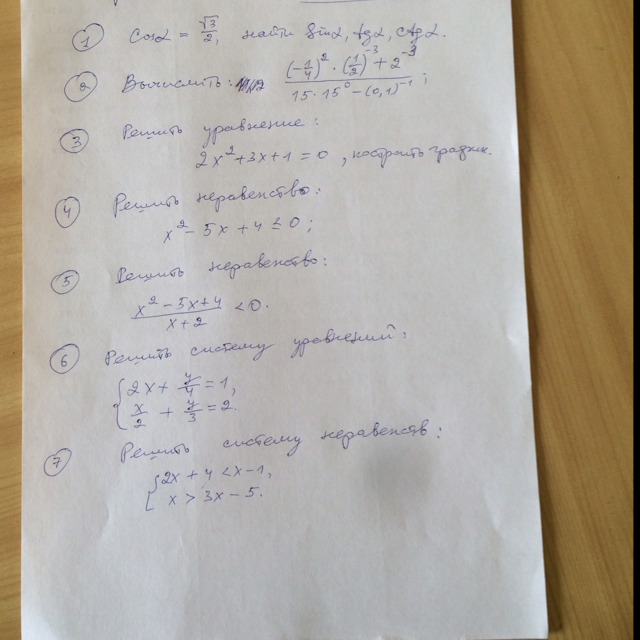 1 Cosα = √3/2, найти Sinα, tgα, ctgα.
2 Вычислить: ((-1/4)² · (1/2)⁻³ + 2⁻³) / (15·15⁰ - (0,1)⁻¹);
3 Решить уравнение:
2x² + 3x + 1 = 0, построить график.
4 Решить неравенство:
x² - 5x + 4 ≤ 0;
5 Решить неравенство:
(x² - 5x + 4) / (x + 2) < 0.
6 Решить систему уравнений:
{ 2x + y/4 = 1,
x/2 + y/3 = 2.
7 Решить систему неравенств:
{ 2x + 4 < x - 1,
x > 3x - 5.